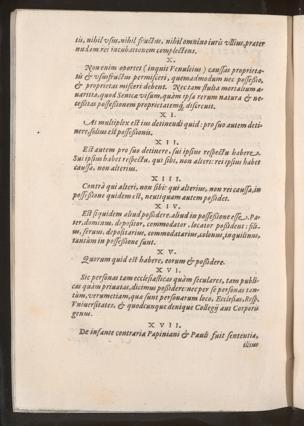 tis, nihil vsus, nihil fructus, nihil omnino iuris vllius, præter
nudam rei incubationem complectens.
X.
Non enim oportet (inquit Venuleius) caussas proprieta-
tis & vsusfructus permisceri, quemadmodum nec possessio,
& proprietas misceri debent. Nec tam stulta mortalium a-
uaritia, quod Seneca visum, quàm ipsa rerum natura & ne-
cessitas possessionem proprietatemq́; discreuit.
XI.
At multiplex est ius detinendi quid: pro suo autem deti-
nere, solius est possessionis.
XII.
Est autem pro suo detinere, sui ipsius respectu habere.
Sui ipsius habet respectu, qui sibi, non alteri: rei ipsius habet
caussa, non alterius.
XIII.
Contrà qui alteri, non sibi: qui alterius, non rei caussa, in
possessione quidem est, neutiquam autem posidet.
XIV.
Est siquidem aliud posidere, aliud in possessione esse. Pa-
ter, dominus, depositor, commodator, locator posident: fili-
us, seruus, depositarius, commodatarius, colonus, inquilinus,
tantùm in possessione sunt.
XV.
Quorum quid est habere, eorum & posidere.
XVI.
Sic personas tam ecclesiasticas quàm seculares, tam publi-
cas quàm priuatas, dicimus posidere: nec per se personas tan-
tùm, verumetiam, quæ sunt personarum loco, Ecclesias, Resp.
Vniuersitates, & quodcunque denique Collegij aut Corporis
genus.
XVII.
De infante contraria Papiniani & Pauli fuit sententia,